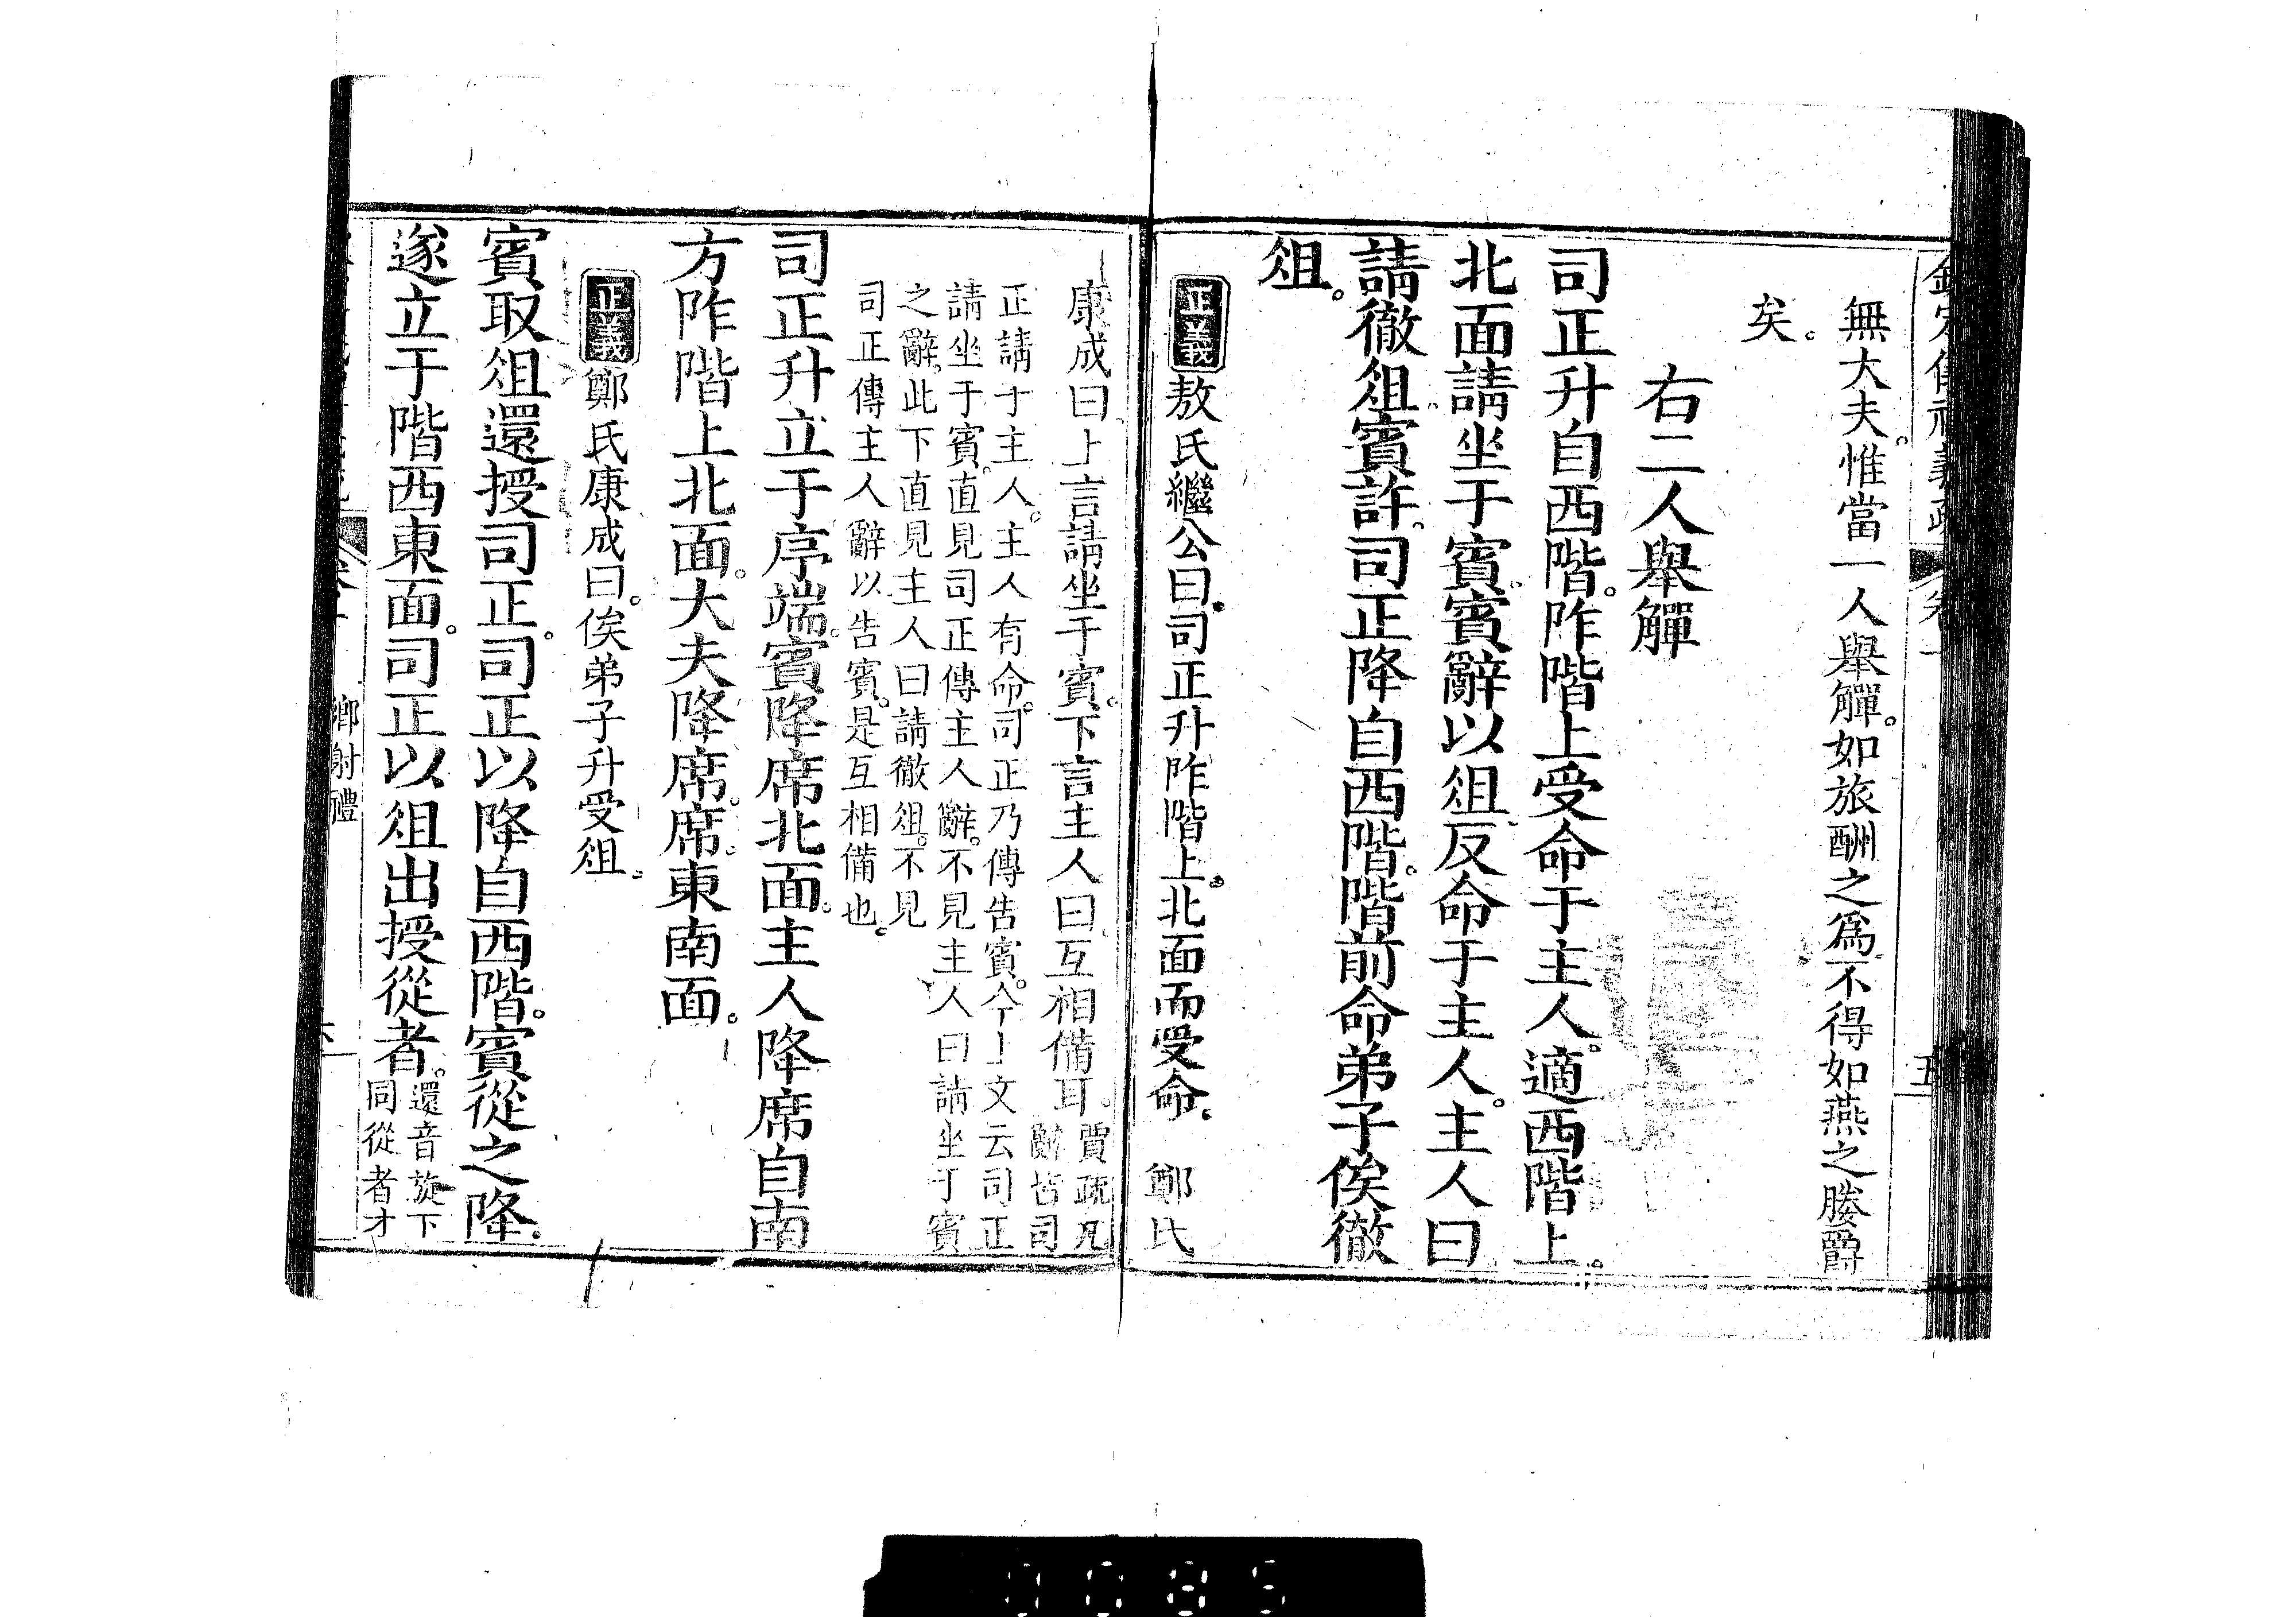 無大夫。惟當一人舉觶。如旅酬之爲。不得如燕之媵爵
矣。
右二人舉觶
司正升自西階。阼階上受命于主人。適西階上。
北面請坐于賓。賓辭以俎。反命于主人。主人曰
請徹俎。賓許。司正降自西階。階前命弟子俟徹
俎。
正義敖氏繼公曰。司正升阼階上。北面而受命。 鄭氏
康成曰。上言請坐于賓。下言主人曰。互相備耳。賈疏凡
辭皆司
正請于主人。主人有命。司正乃傳告賓。今上文云司正
請坐于賓。直見司正傳主人辭。不見主人曰請坐于賓
之辭。此下直見主人曰請徹俎。不見
司正傳主人辭以告賓。是互相備也。
司正升立于序端。賓降席北面。主人降席自南
方阼階上北面。大夫降席。席東南面。
正義鄭氏康成曰。俟弟子升受俎。
賓取俎還授司正。司正以降自西階。賓從之降。
遂立于階西東面。司正以俎出授從者。還音旋下
同從者才
鄉射禮